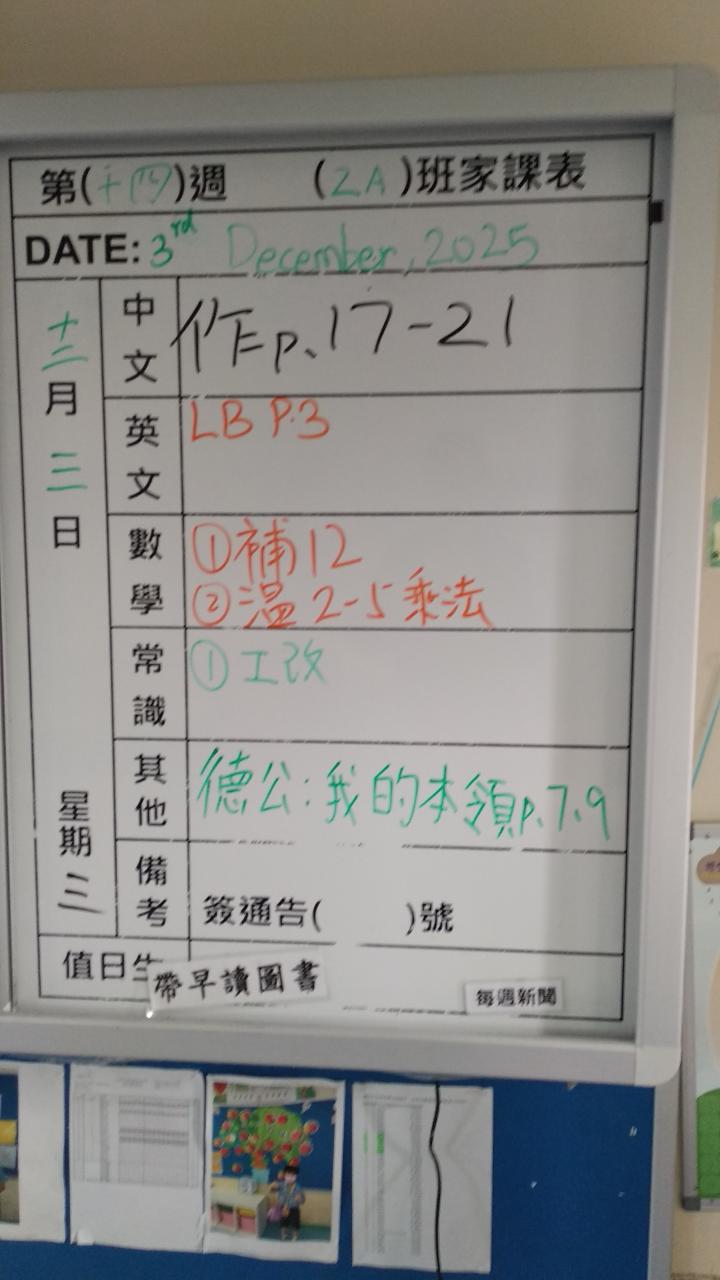 第(十四)週 (2A)班家課表
DATE: 3rd December, 2025
十二月三日 星期三
中文 作p.17-21
英文 LB P.3
數學 ①補12
②温2-5乘法
常識 ①工改
其他 德公:我的本領p.7,9
備考 簽通告( )號
值日生
帶早讀圖書
每週新聞